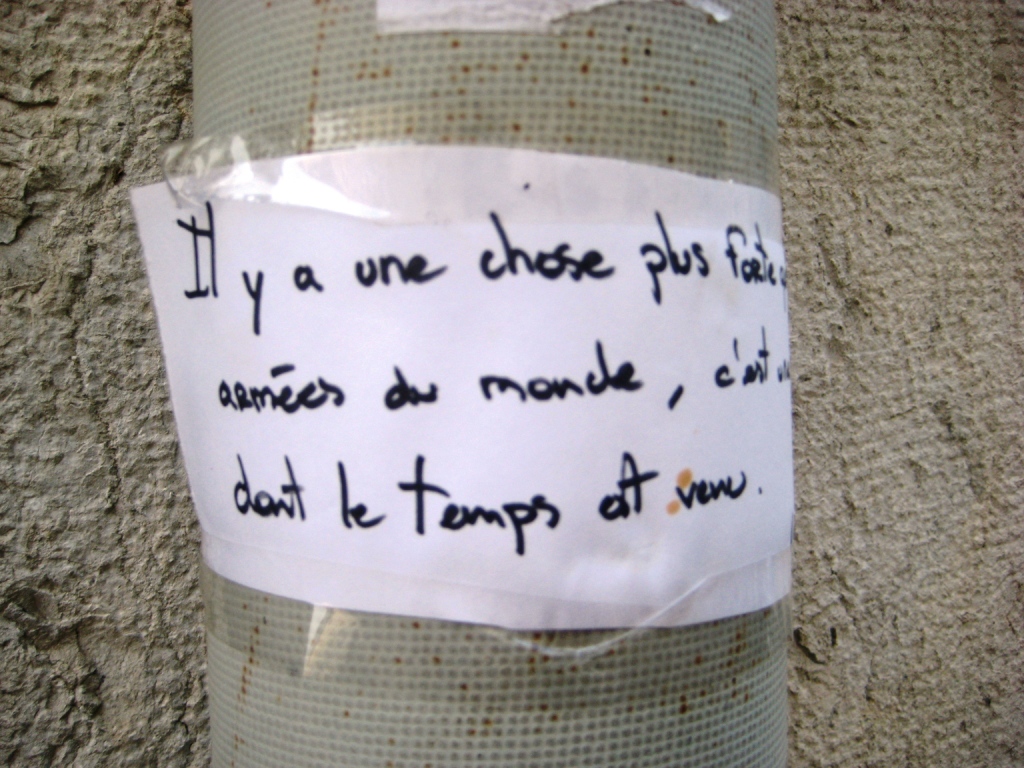 Il y a une chose plus forte
armées du monde, c'est
dont le temps est venu.